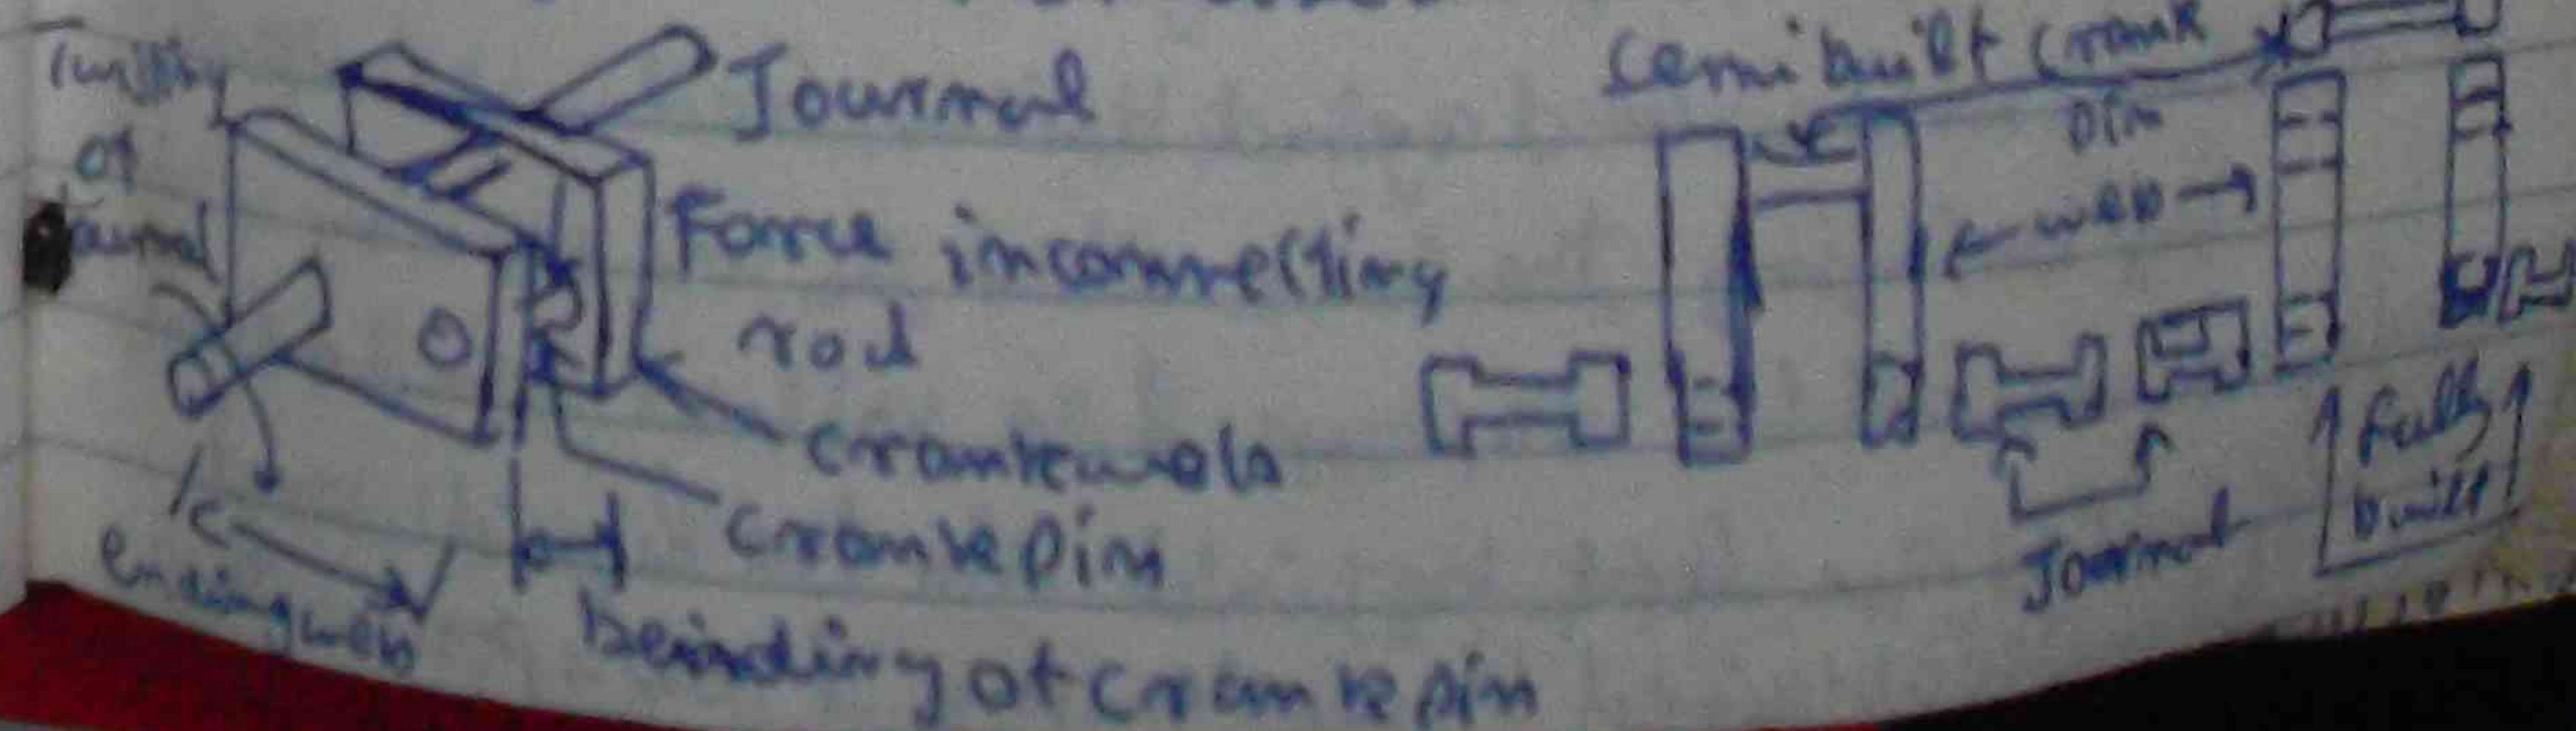 Twisting
of
Journal
Journal
Force inconnecting
rod
crankewebs
cranke pin
bending of cranke pin
Cemi built Crank
pin
web
Journal
fully
built